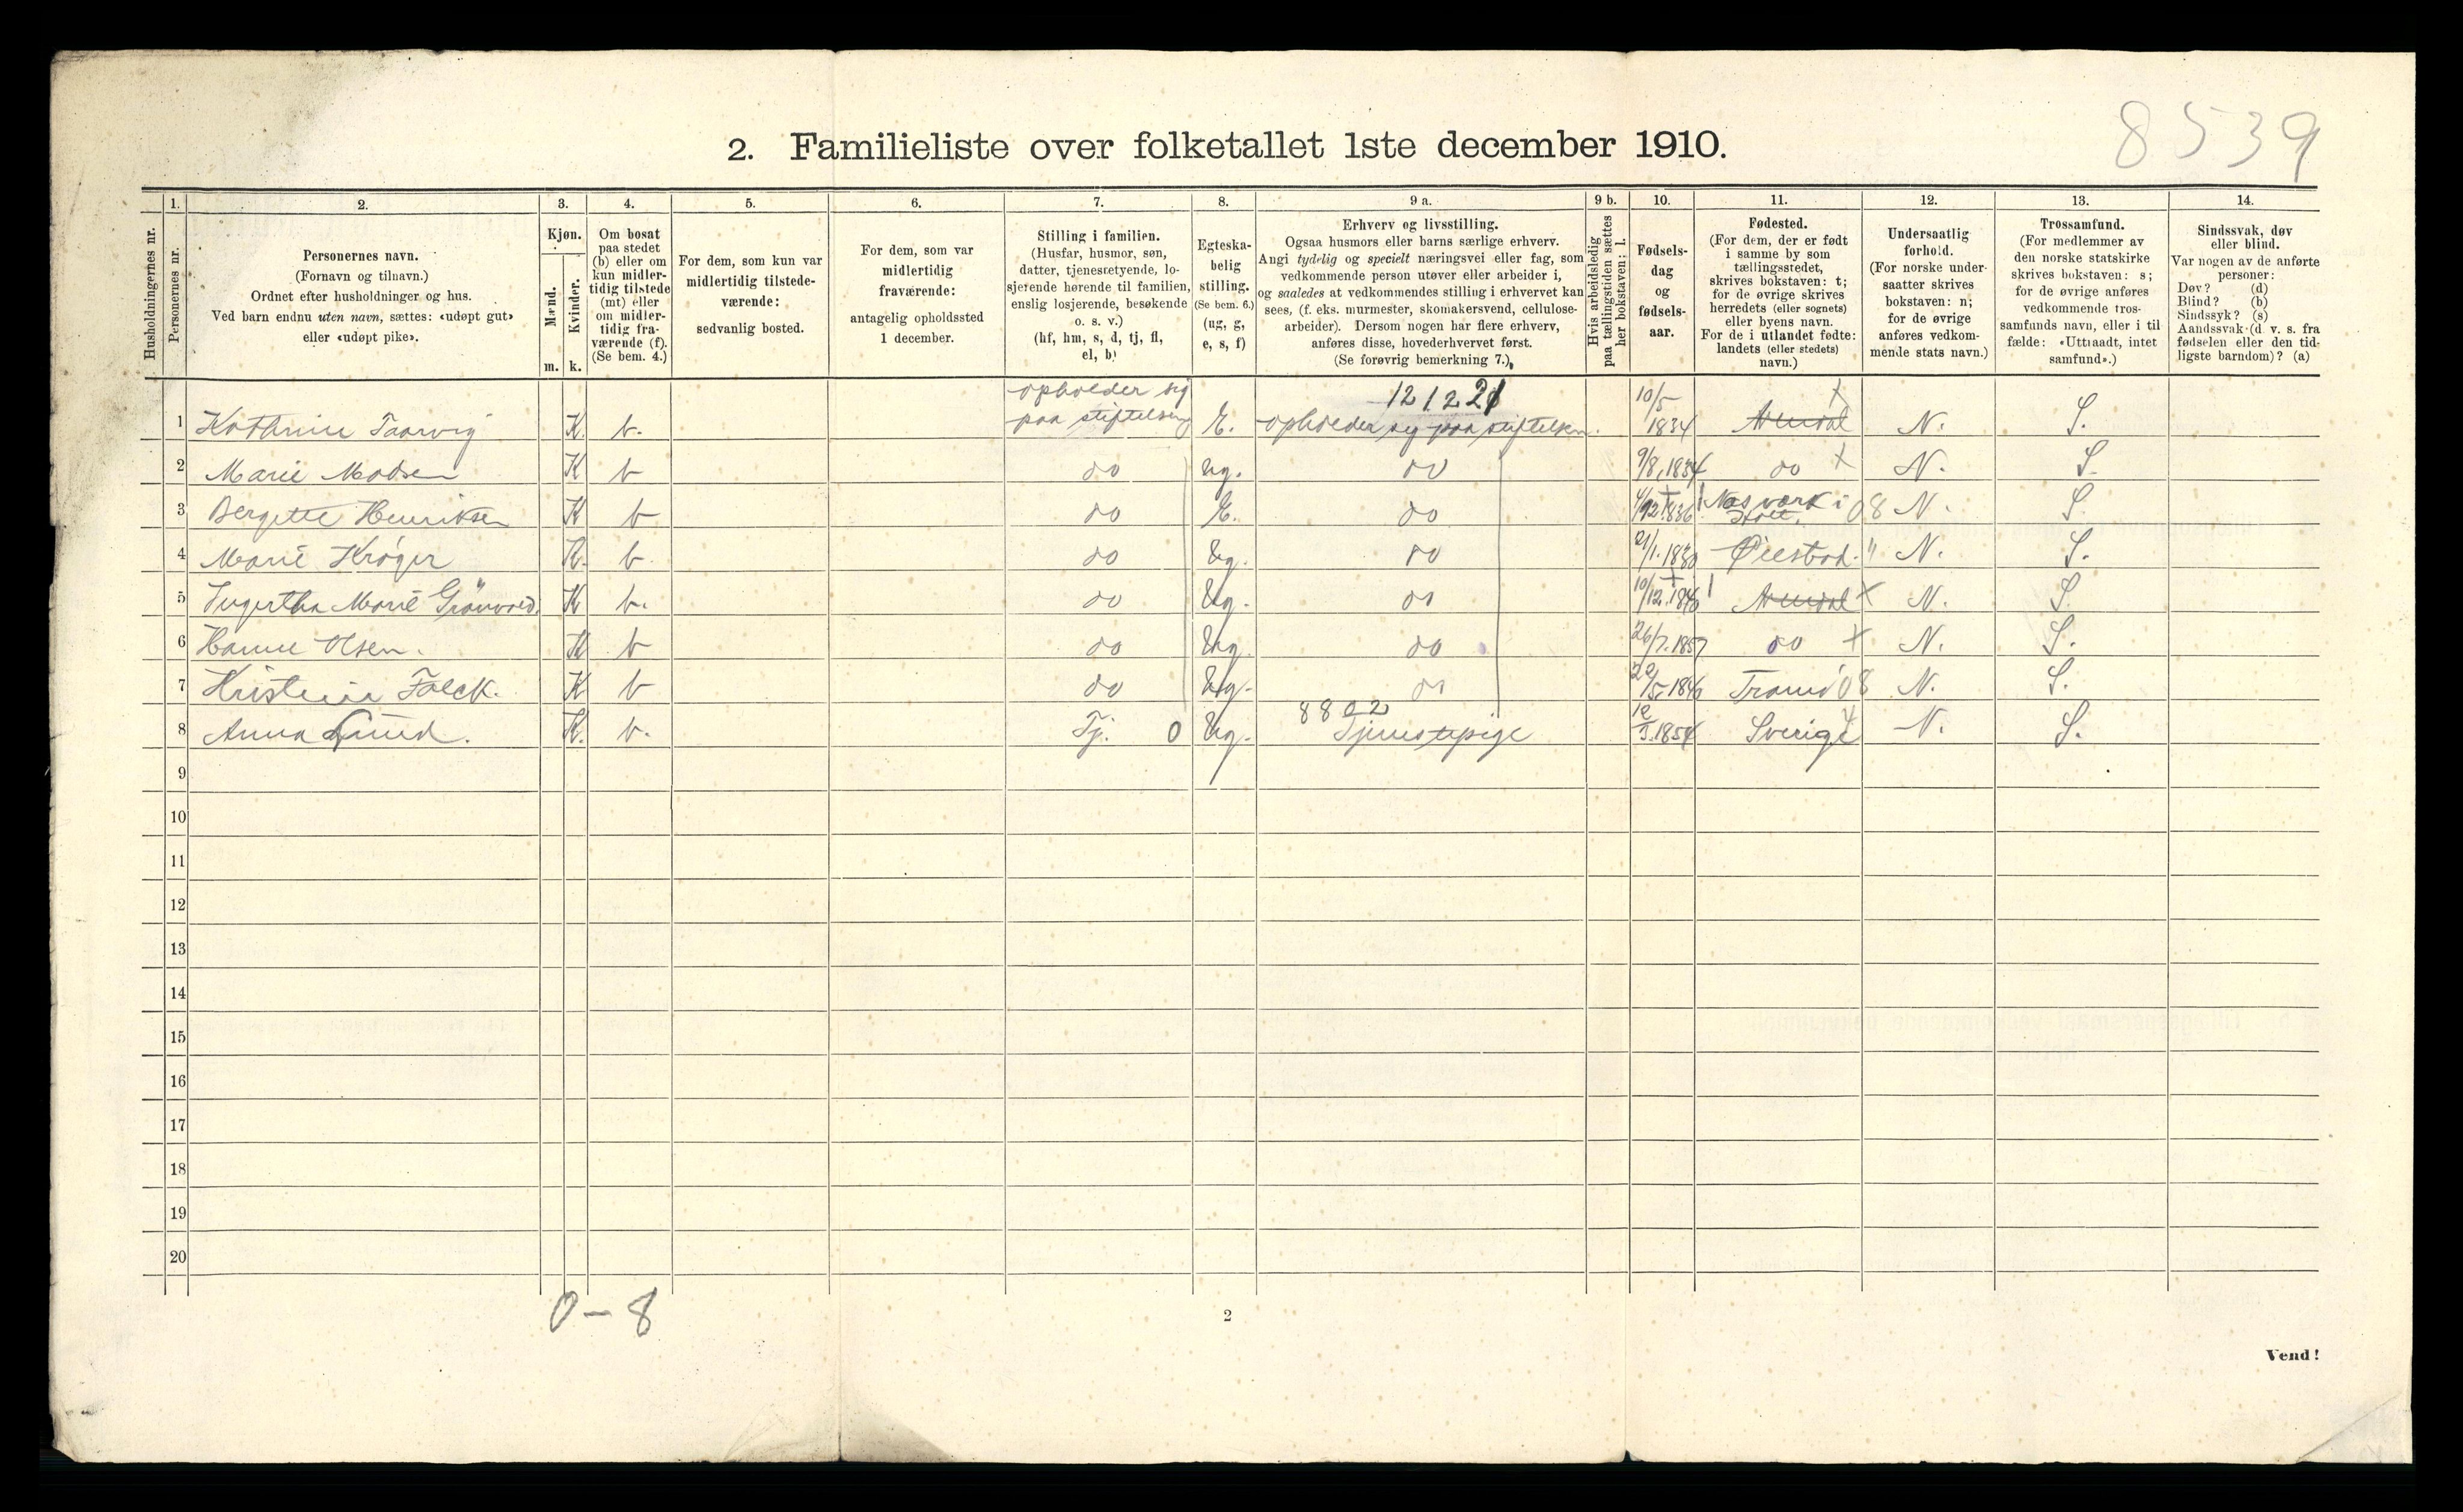 8539
2. Familieliste over folketallet 1ste december 1910.
1. 2. 3. 4. 5. 6. 7. 8. 9 a. 9 b. 10. 11. 12. 13. 14.
Husholdningernes nr.
Personernes nr.
Personernes navn.
(Fornavn og tilnavn.)
Ordnet efter husholdninger og hus.
Ved barn endnu uten navn, sættes: «udøpt gut»
eller «udøpt pike».
Kjøn.
Mænd.
Kvinder.
m. k.
Om bosat
paa stedet
(b) eller om
kun midler-
tidig tilstede
(mt) eller
om midler-
tidig fra-
værende (f).
(Se bem. 4.)
For dem, som kun var
midlertidig tilstede-
værende:
sedvanlig bosted.
For dem, som var
midlertidig
fraværende:
antagelig opholdssted
1 december.
Stilling i familien.
(Husfar, husmor, søn,
datter, tjenestetyende, lo-
sjerende hørende til familien,
enslig losjerende, besøkende
o. s. v.)
(hf, hm, s, d, tj, fl,
el, b)
Egteska-
belig
stilling.
(Se bem. 6.)
(ug, g,
e, s, f)
Erhverv og livsstilling.
Ogsaa husmors eller barns særlige erhverv.
Angi tydelig og specielt næringsvei eller fag, som
vedkommende person utøver eller arbeider i,
og saaledes at vedkommendes stilling i erhvervet kan
sees, (f. eks. murmester, skomakersvend, cellulose-
arbeider). Dersom nogen har flere erhverv,
anføres disse, hovederhvervet først.
(Se forøvrig bemerkning 7.)
Hvis arbeidsledig
paa tællingstiden sættes
her bokstaven: l.
Fødsels-
dag
og
fødsels-
aar.
Fødested.
(For dem, der er født
i samme by som
tællingsstedet,
skrives bokstaven: t;
for de øvrige skrives
herredets (eller sognets)
eller byens navn.
For de i utlandet fødte:
landets (eller stedets)
navn.)
Undersaatlig
forhold.
(For norske under-
saatter skrives
bokstaven: n;
for de øvrige
anføres vedkom-
mende stats navn.)
Trossamfund.
(For medlemmer av
den norske statskirke
skrives bokstaven: s;
for de øvrige anføres
vedkommende tros-
samfunds navn, eller i til-
fælde: «Uttraadt, intet
samfund».)
Sindssvak, døv
eller blind.
Var nogen av de anførte
personer:
Døv? (d)
Blind? (b)
Sindssyk? (s)
Aandssvak (d. v. s. fra
fødselen eller den tid-
ligste barndom)? (a)
1 Kathrine Taarvig K b. opholder sig paa stiftelsen E. opholder sig paa stiftelsen. 10/5 1834 Arendal N. S.
2 Marie Madsen K b do ug. do 9/8 1834 do N. S.
3 Bergette Henriksen K b do E. do 4/12 1836 Nes værk i Holt. 08 N. S.
4 Marie Krøger K. b. do Ug. do 21/1. Øiestad. " N. S.
5 Marie Grönvold. K b. do Ug. do 10/12. Arendal N. S.
6 Hanne Olsen. K b do Ug. do 26/7. 1857 do N. S.
7 Falck. K b do Ug. do 1846 Tromø 08 N. S.
8802
8 Anna Lund. K. b. Tj. 0 Ug. Tjenestepige 1854 Sverige N. S.
9
10
11
12
13
14
15
16
17
18
19
20
0 - 8
2
Vend!